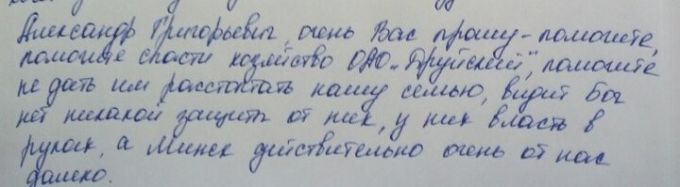 Александр Григорьевич, очень Вас прошу - помогите,
помогите спасти хозяйство ОАО "Друйский", помогите
не дать им растоптать нашу семью, видит Бог
нет никакой защиты от них, у них власть в
руках, а Минск действительно очень от нас
далеко.